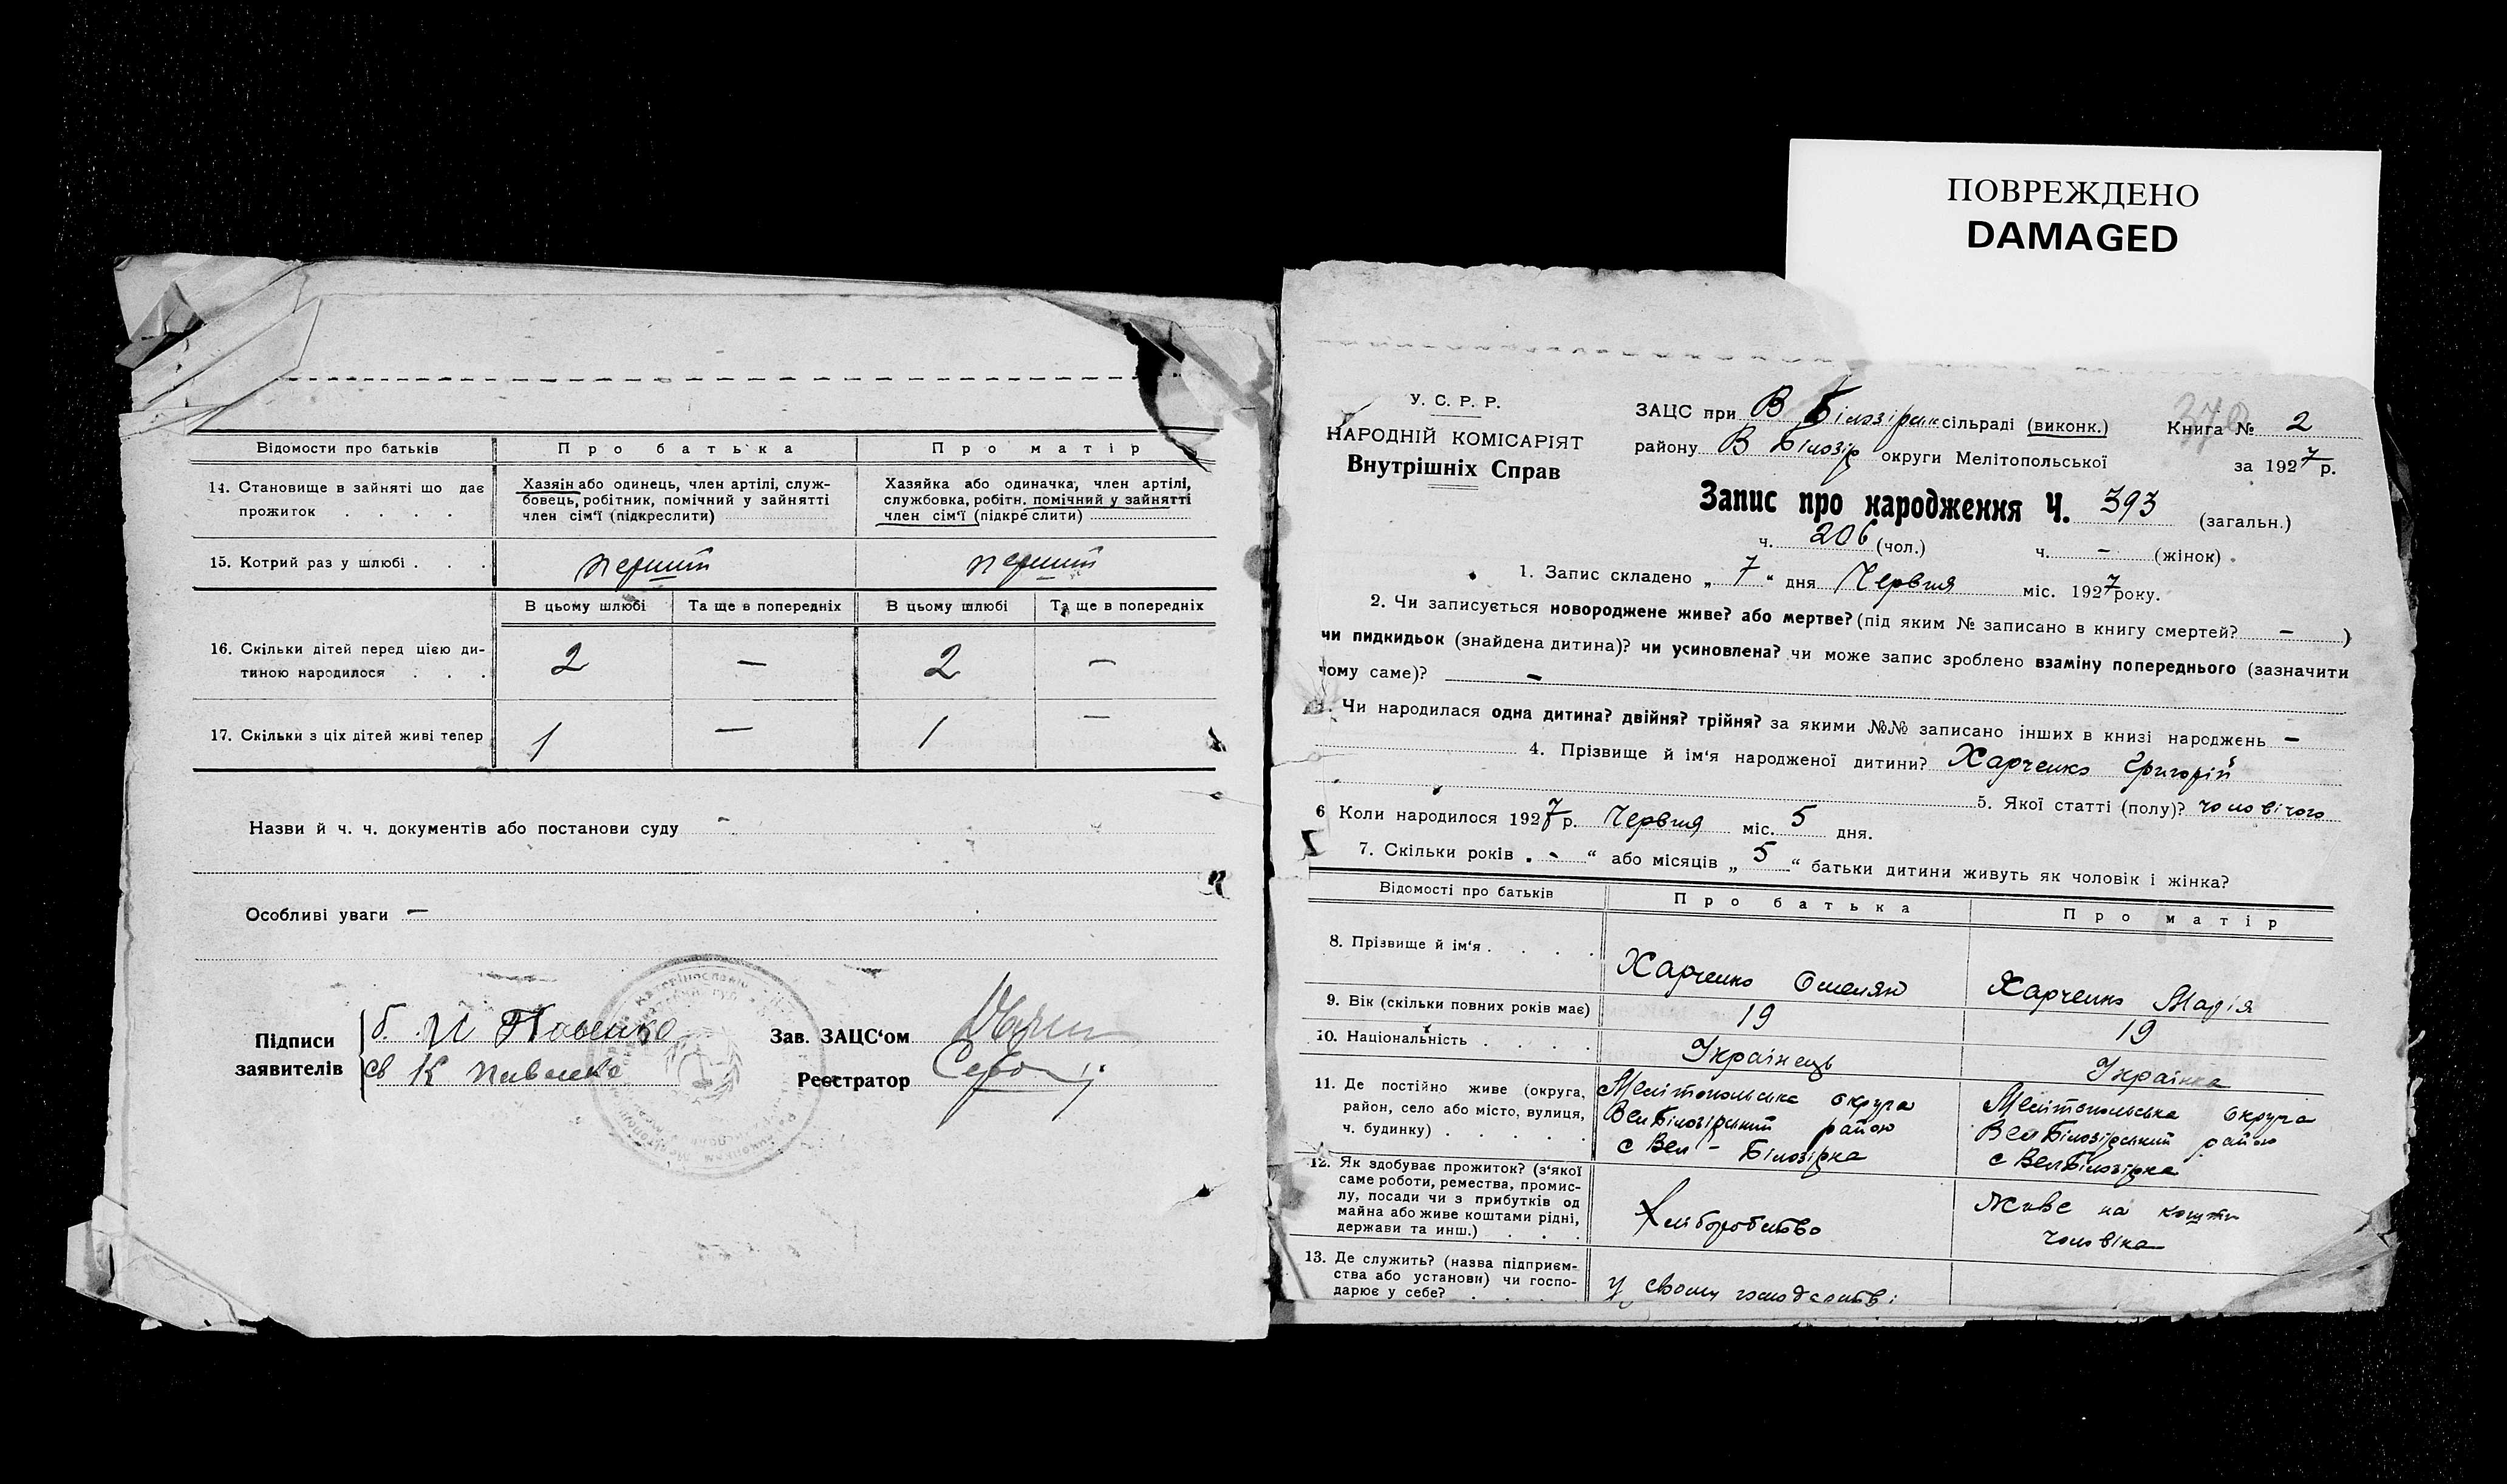 ПОВРЕЖДЕНО
DAMAGED
Відомости про батьків
Про батька
Про матір
14. Становище в зайняті що дає
прожиток . . . .
Хазяїн або одинець, член артілі, служ-
бовець, робітник, помічний у зайнятті
член сім'ї (підкреслити)
Хазяйка або одиначка, член артілі,
службовка, робітн. помічний у зайнятті
член сім'ї (підкреслити)
15. Котрий раз у шлюбі . . .
перший
перший
В цьому шлюбі
Та ще в попередніх
В цьому шлюбі
Та ще в попередніх
16. Скільки дітей перед цією ди-
тиною народилося . . .
2 — 2 —
17. Скільки з ціх дітей живі тепер
1 — 1 —
Назви й ч. ч. документів або постанови суду -
Особливі уваги —
Підписи
заявителів
б.
св К Павленко
Зав. ЗАЦС'ом
Реєстратор
У. С. Р. Р.
НАРОДНІЙ КОМІСАРІЯТ
Внутрішніх Справ
ЗАЦС при В Білозірк сільраді (виконк.)
району В Білозір округи Мелітопольської
378
Книга № 2
за 1927 р.
Запис про народження Ч. 393 (загальн.)
ч. 206 (чол.) ч. - (жінок)
1. Запис складено „ 7 " дня Червня міс. 1927 року.
2. Чи записується новороджене живе? або мертве? (під яким № записано в книгу смертей? - )
чи пидкидьок (знайдена дитина)? чи усиновлена? чи може запис зроблено взаміну попереднього (зазначити
чому саме)? -
Чи народилася одна дитина? двійня? трійня? за якими №№ записано інших в книзі народжень -
4. Прізвище й ім'я народженої дитини? Харченко Григорій
5. Якої статті (полу)? чоловічого
6 Коли народилося 1927 р. Червня міс. 5 дня.
7. Скільки років „ - " або місяців „ 5 " батьки дитини живуть як чоловік і жінка?
Відомості про батьків
Про батька
Про матір
8. Прізвище й ім'я . . . .
Харченко Омелян
Харченко Марія
9. Вік (скільки повних років має)
19
19
10. Національність . . . .
Українець
Українка
11. Де постійно живе (округа,
район, село або місто, вулиця,
ч. будинку) . . . . .
Мелітопольська округа
Вел Білозірський район
с Вел - Білозірка
Мелітопольська округа
Вел Білозірський район
с Вел Білозірка
12. Як здобуває прожиток? (з'якої
саме роботи, ремества, промис-
лу, посади чи з прибутків од
майна або живе коштами рідні,
держави та инш.) . . .
Хліборобство
Живе на кошти
чоловіка
13. Де служить? (назва підприєм-
ства або установи) чи госпо-
дарює у себе? . . . .
У свому господарстві